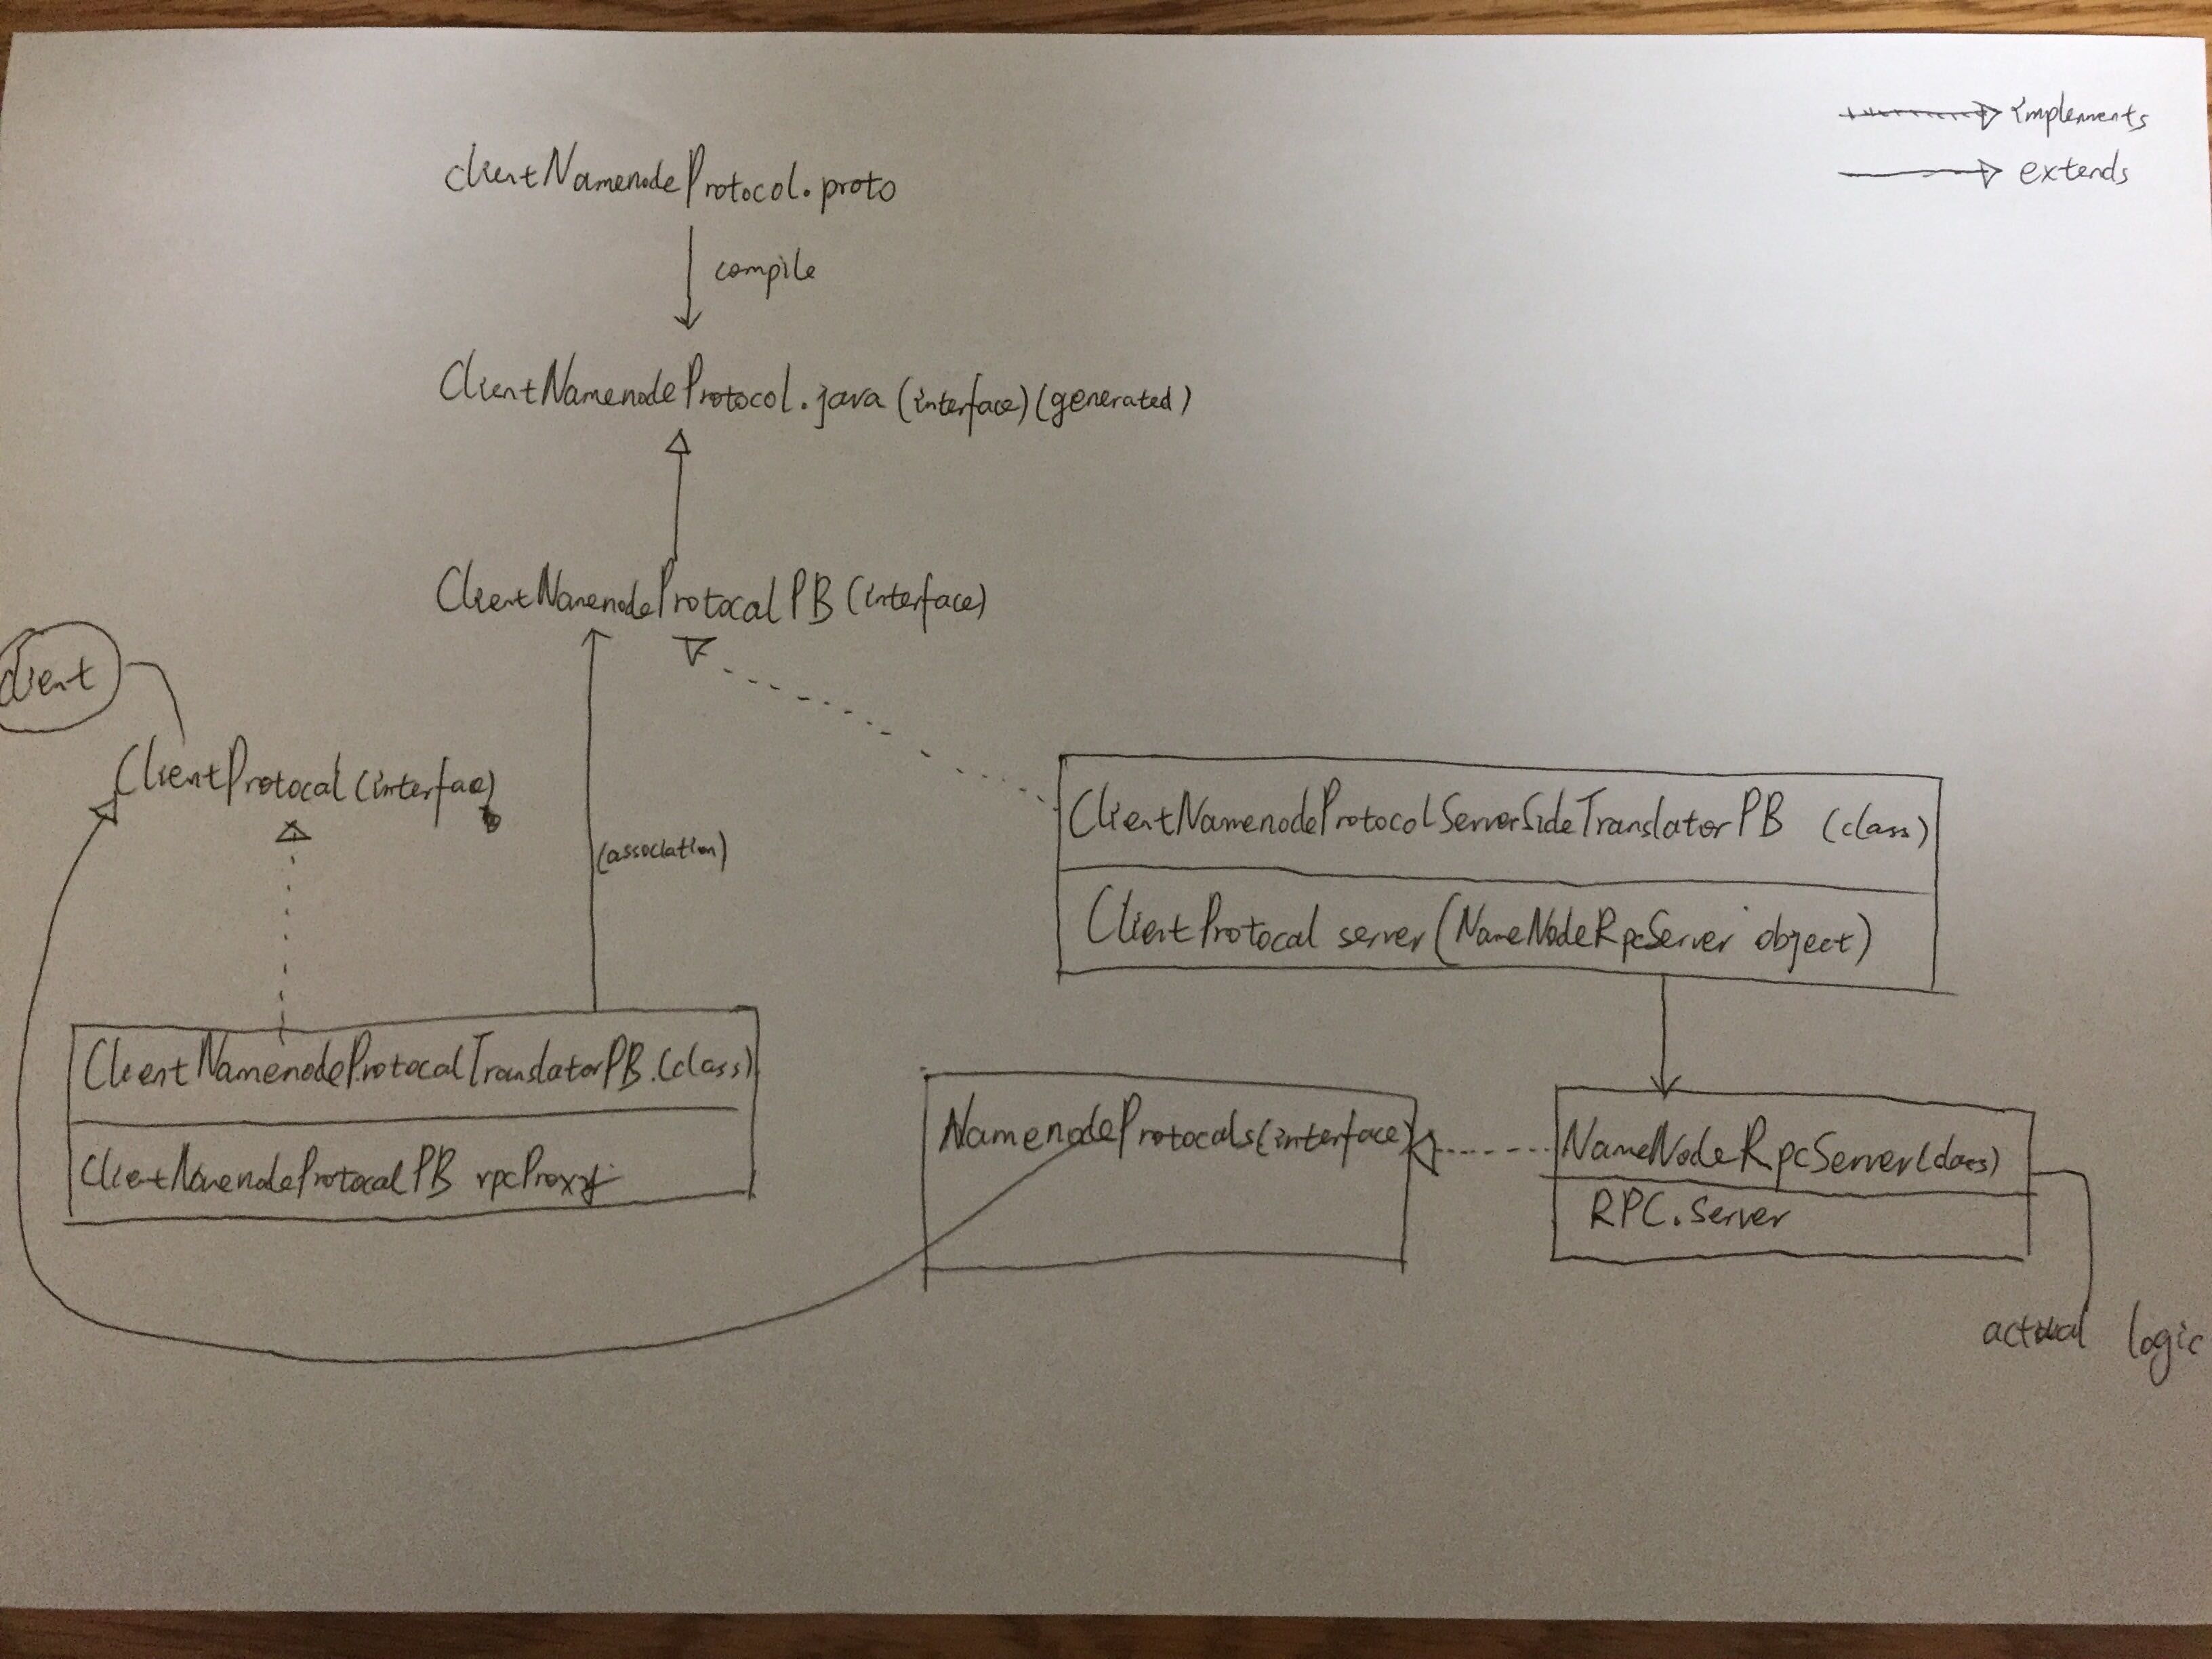 implements
extends
clientNamenodeProtocol.proto
compile
ClientNamenodeProtocol.java (interface) (generated)
ClientNamenodeProtocalPB (interface)
client
ClientProtocal (interfac)
(association)
ClientNamenodeProtocolServerSideTranslatorPB (class)
ClientProtocal server (NameNodeRpcServer object)
ClientNamenodeProtocalTranslatorPB.(class)
ClientNamenodeProtocalPB rpcProxy
NamenodeProtocals (interface)
NameNodeRpcServer (class)
RPC.Server
actual logic